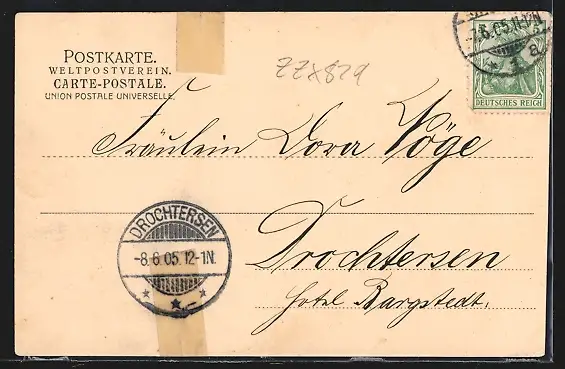 POSTKARTE.
WELTPOSTVEREIN.
CARTE-POSTALE.
UNION POSTALE UNIVERSELLE.
ZZX829
7.6.05.11-12N
* 1 a
DEUTSCHES REICH
Fräulein Dora Pöge
DROCHTERSEN
-8.6.05.12-1N.
Drochtersen
Hotel Bargstedt.